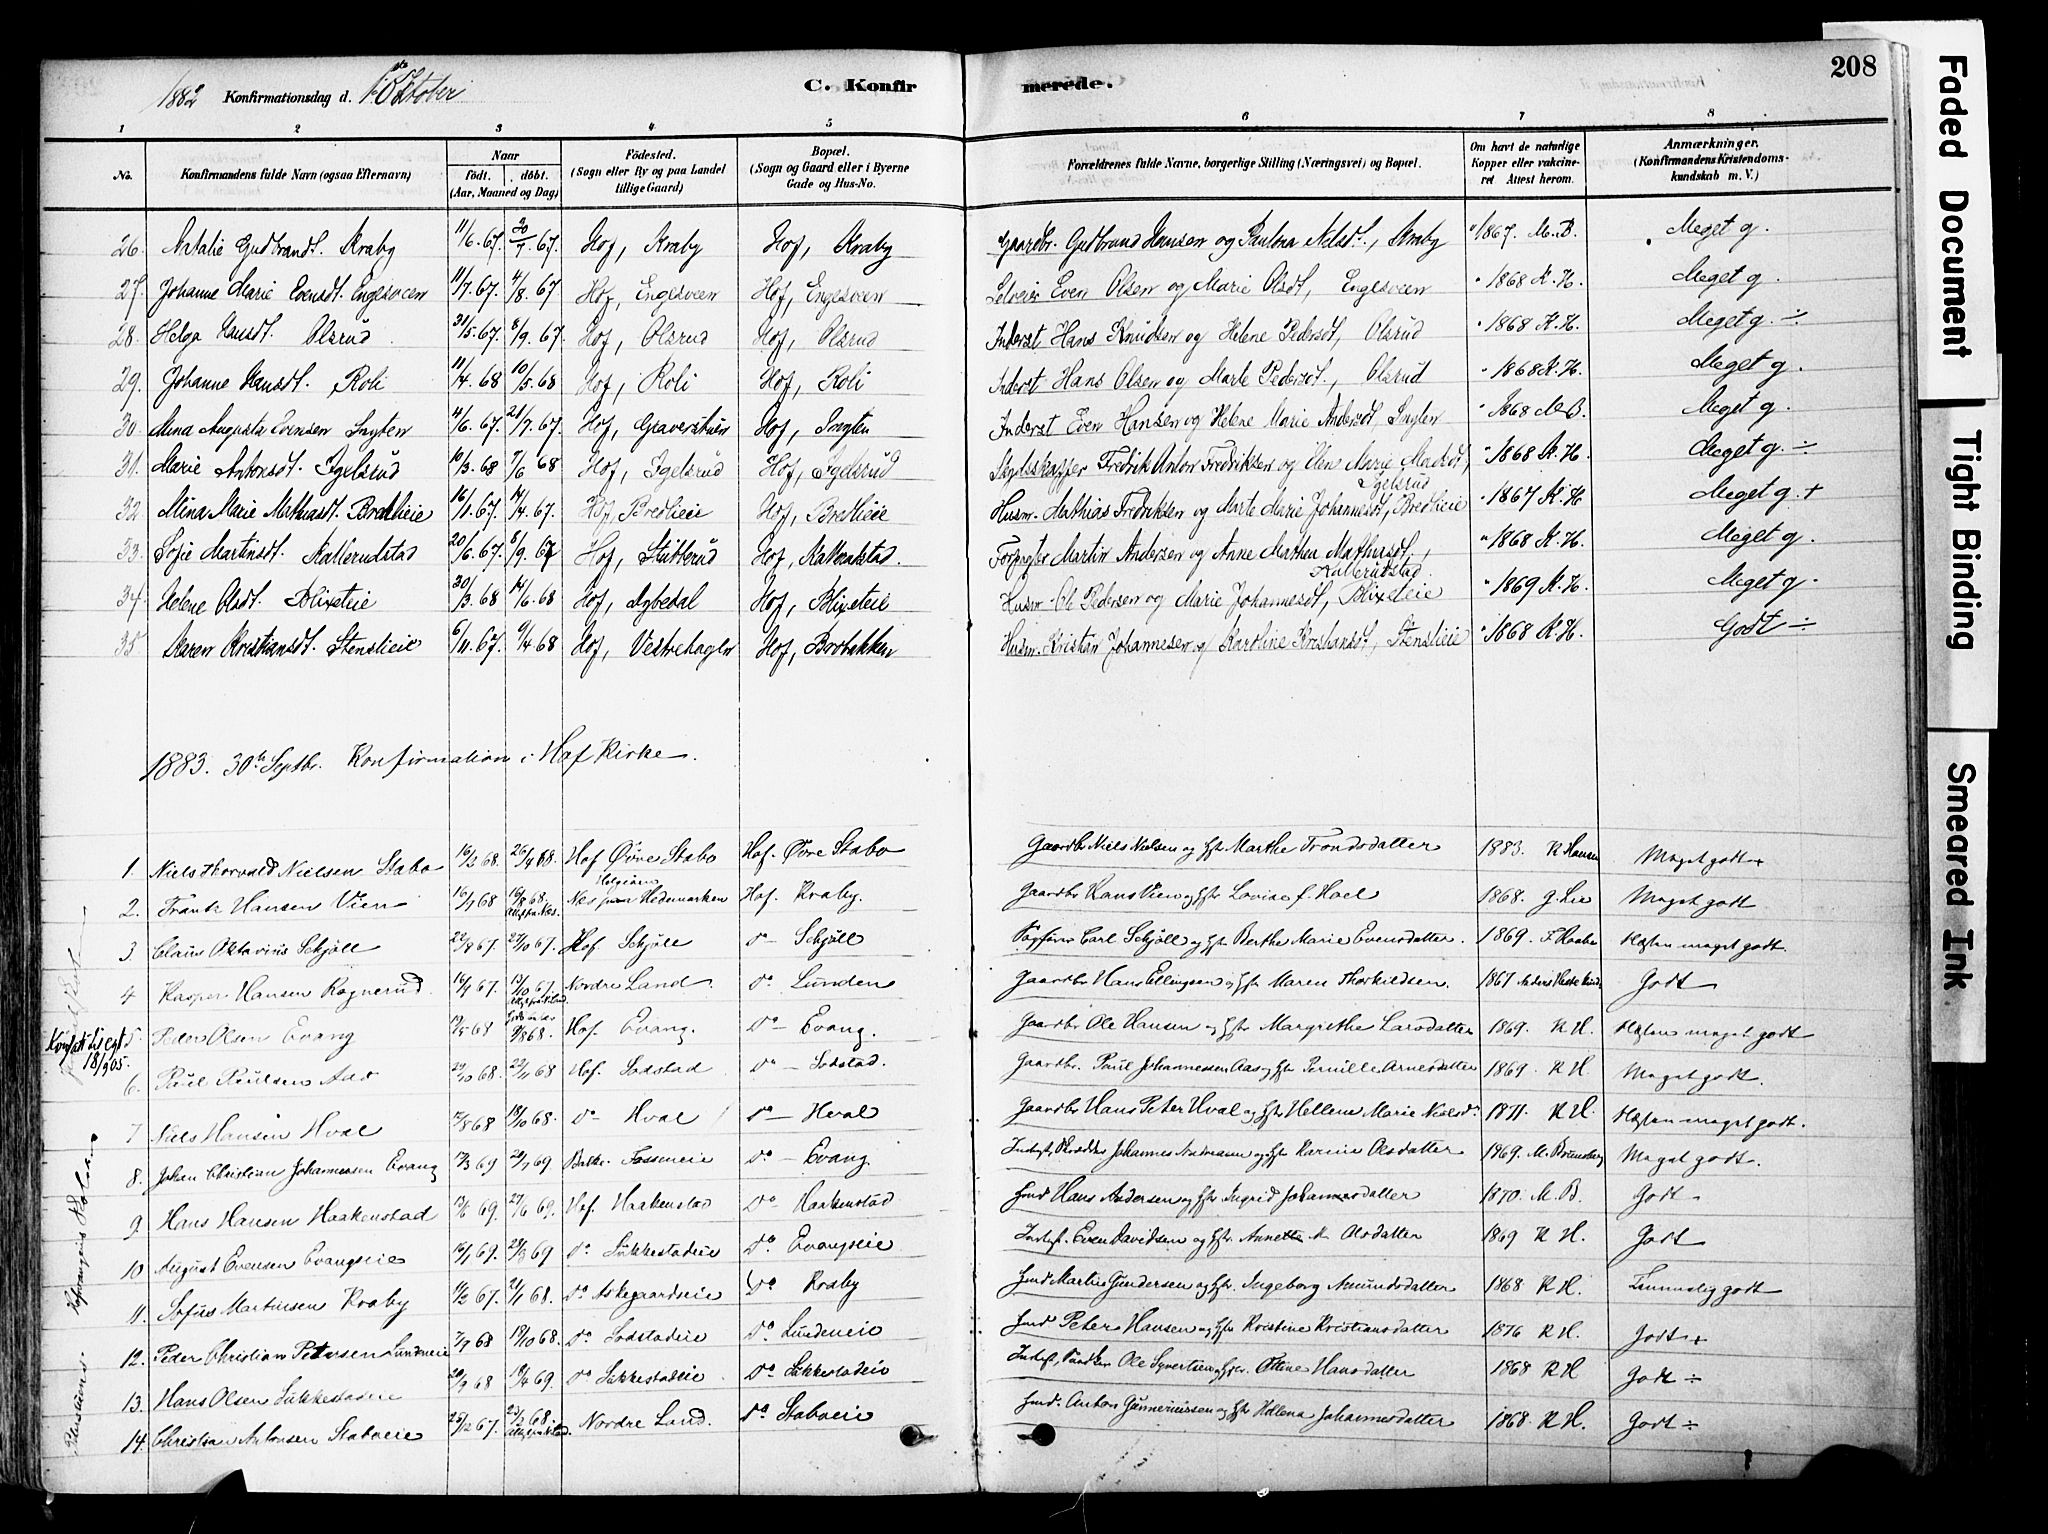 208
Faded Document
Tight Binding
Smeared Ink
1882 Konfirmationsdag d. 1ste Oktober C. Konfirmerede.
1 2 3 4 5 6 7 8
No. Konfirmandens fulde Navn (ogsaa Efternavn) Naar født. døbt. (Aar, Maaned og Dag) Fødested. (Sogn eller By og paa Landet tillige Gaard) Bopæl. (Sogn og Gaard eller i Byerne Gade og Hus-No. Forældrenes fulde Navne, borgerlige Stilling (Næringsvei) og Bopæl. Om havt de naturlige Kopper eller vakcineret. Attest herom. Anmærkninger. (Konfirmandens Kristendomskundskab m. V.)
26. Natalie Gudbrandt. Kraby 11/6.67. 30/7.67. Hof, Kraby Hof, Kraby Gaardbr. Gudbrand Hansen og Paulina Nelsdt., Kraby 1867. M.B. Meget g.
27. Johanne Marie Evensdt. Engesveen 11/7.67. 4/8.67 Hof, Engesveen Hof, Engesveen Selveier Even Olsen og Marie Olsdt, Engesveen 1868 K.H. Meget g.
28. Helga Hansdt. Olsrud 31/5.67. 8/9.67. Hof, Olsrud Hof, Olsrud Inderst Hans Knudsen og Helene Pedersdt, Olsrud 1868 K.H. Meget g. ÷
29. Johanne Hansdt. Roli 11/4.68 10/5.68 Hof, Roli Hof, Roli Inderst Hans Olsen og Marte Pedersdt., Olsrud 1868 K.H. Meget g.
30. Mina Augusta Evensen Snyten 4/6.67. 21/7.67. Hof, Graverstuen Hof, Snyten Inderst Even Hansen og Helene Marie Andersdt, Snyten 1868 M.B. Meget g.
31. Marie Antonsdt. Egelsrud 10/3.68 7/6 68 Hof, Egelsrud Hof, Egelsrud Skydsskaffer Fredrik Anton Fredriksen og Elen Marie Madsdt, Egelsrud 1868 K.H. Meget g. ÷
32. Mina Marie Mathiasdt. Bredlieie 16/1.67. 14/4.67. Hof, Bredlieie Hof, Bredlieie Husm. Mathias Fredriksen og Marte Marie Johannesdt, Bredlieie 1867 K.H Meget g. +
33. Sofie Martinsdt. Kallerudstad 20/6.67. 8/9.67 Hof, Stubberud Hof, Kallerudstad. Forpagter Martin Andersen og Anne Marthea Mathiasdt., Kallerudstad. 1868 K.H. Meget g.
34. Helene Olsdt. Blixeteie 30/3.68 14/6.68 Hof, Nybedal Hof, Blixeteie Husm. Ole Pedersen og Marie Johannesdt, Blixeteie 1869 K.H. Meget g.
35. Karen Kristiansdt. Stenslieie 6/11.67. 9/4 68 Hof, Vestrehagen Hof, Borbakken Husm. Kristian Johannesen og Karoline Kristiansdt, Stenslieie 1868 K.H. Godt ÷
1883. 30te Septbr. Konfirmation i Hof Kirke.
1. Niels Thorvald Nielsen Stabo 16/2 68. 26/4 68. Hof Øvre Stabo Hof. Øvre Stabo Gaardbr Niels Nielsen og Hst Marthe Trondsdatter 1883. K Hansen Meget godt +
2. Frants Hansen Vien 16/1 68 16/8 68. Nes Hedemarken Hof. Kraby. Gaardbr Hans Vien og Hst Lovise f. Hoel 1868. J. Lie Meget godt
3 Claus Oktavius Schjöll 22/8 67. 27/10 67. Hof Schjöll Do Schjöll Carl Schjöll og Hst Berthe Marie Evensdatter. 1869. F. Raabe Næsten meget godt.
4 Kasper Hansen Rognerud. 16/9 67. 13/10 67. Nordre Land Do Lunden Gaardbr Hans Ellingsen og Hst Maren Thorkildsen. 1867 Godt
5. Peder Olsen Evang 19/5 68 9/8 68. Hof Evang. Do Evang. Gaardbr Ole Hansen og Hst Margrethe Larsdatter 1869. K H. Næsten meget godt
Konf.att. utstegt 18/9 05.
6. Paul Paulsen Aas 29/10 68. 22/11 68 Hof. Sodstad Do Sodstad. Gaardbr. Paul Johannessen Aas og Hst Pernille Arnesdatter 1869. K H. Meget godt.
7 Niels Hansen Hval 12/8 68 18/10 68. Do Hval Do Hval Gaardbr Hans Peter Hval og Hst Hellene Marie Nielsd. 1871. K H. Næsten meget godt.
8. Johan Christian Johannessen Evang 12/3 69 Do Evang Johannes Andreasen og Hst Karine Olsdatter 1869. Meget godt.
9 Hans Hansen Haakenstad 27/6 69. Hof. Haakenstad Do Haakenstad Hmd Hans Andersen og Hst Ingrid Johannesdatter 1870. M. B. Godt
10 August Evensen Evangseie 16/1 69. 28/3 69 Do Sukkestadeie Do Evangseie Indst. Even Davidsen og Hst. Annette Olsdatter 1869 K H. Godt
11. Sofus Martinsen Kraby 11/12 67. 21/1 68. Do Askegaardseie Do Kraby Hmd Martin Gundersen og Hst. Ingeborg Amundsdatter 1868 K H. Temmelig godt
12. Peder Christian Petersen Lundeneie 7/9 68 19/10 68. Do Sodstadeie Do Lundeneie Hmd Peter Hansen og Hst Kristine Kristiansdatter 1876 K H. Godt +
13. Hans Olsen Sukkestadeie 20/9 68 13/4 69. Do Sukkestadeie Do Sukkestadeie Ole Syvertsen og Hst. Ottine Hansdatter 1868 K H Godt ÷
14. Christian Antonsen Staboeie 26/12 67. 23/2 68 Nordre Land. Do Staboeie Hmd. Anton Gunneriussen og Hst Hellena Johannesdatter 1868. K H. Godt ÷